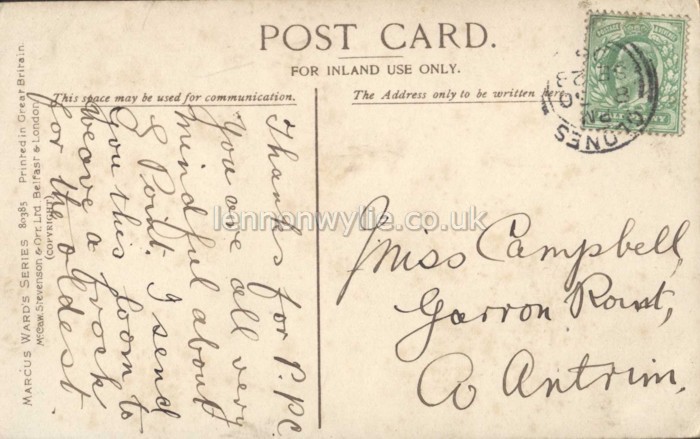 POST CARD.
FOR INLAND USE ONLY.
This space may be used for communication.
The Address only to be written here.
Thanks for P.PC.
You are all very
mindful about
G Point. I send
you this loom to
weave a frock
for the oldest
Miss Campbell,
Garron Point,
Co Antrim.
CLONES
MARCUS WARD'S SERIES 80385 Printed in Great Britain.
McCaw, Stevenson & Orr, Ltd. Belfast & London.
(COPYRIGHT)
lennonwylie.co.uk